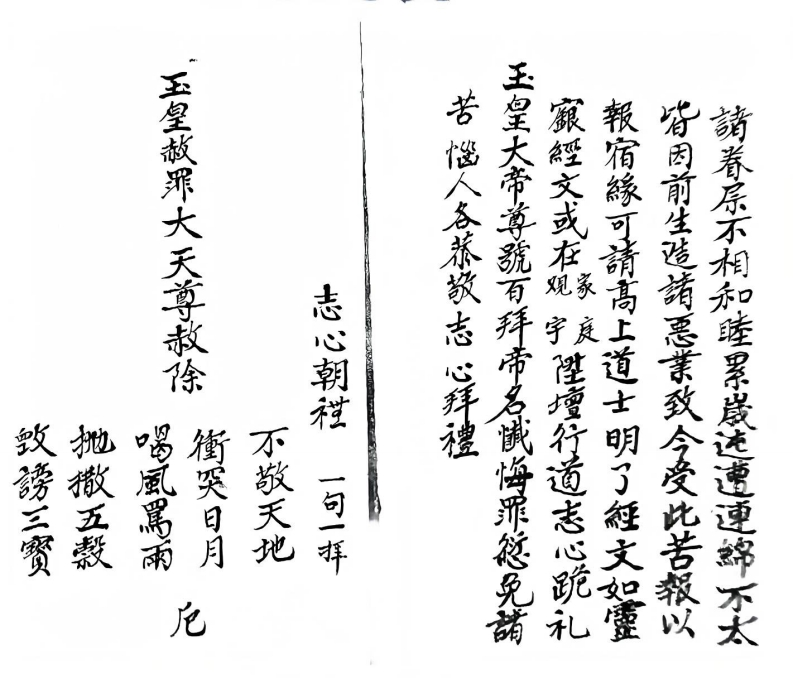 諸眷屬不相和睦累歲迍遭連綿不太
皆因前生造諸惡業致今受此苦報以
報宿緣可請高上道士明了經文如靈
經文或在家庭觀宇陞壇行道志心跪礼
玉皇大帝尊號百拜帝名懺悔罪愆免諸
苦惱人各恭敬志心拜禮
志心朝禮 一句一拜
玉皇赦罪大天尊赦除
不敬天地
衝突日月
喝風罵雨
拋撒五穀
毀謗三寶